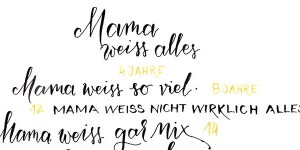 Mama
weiss alles
4 JAHRE
Mama weiss so viel. 8 JAHRE
12 MAMA WEISS NICHT WIRKLICH ALLES
Mama weiss gar nix 14